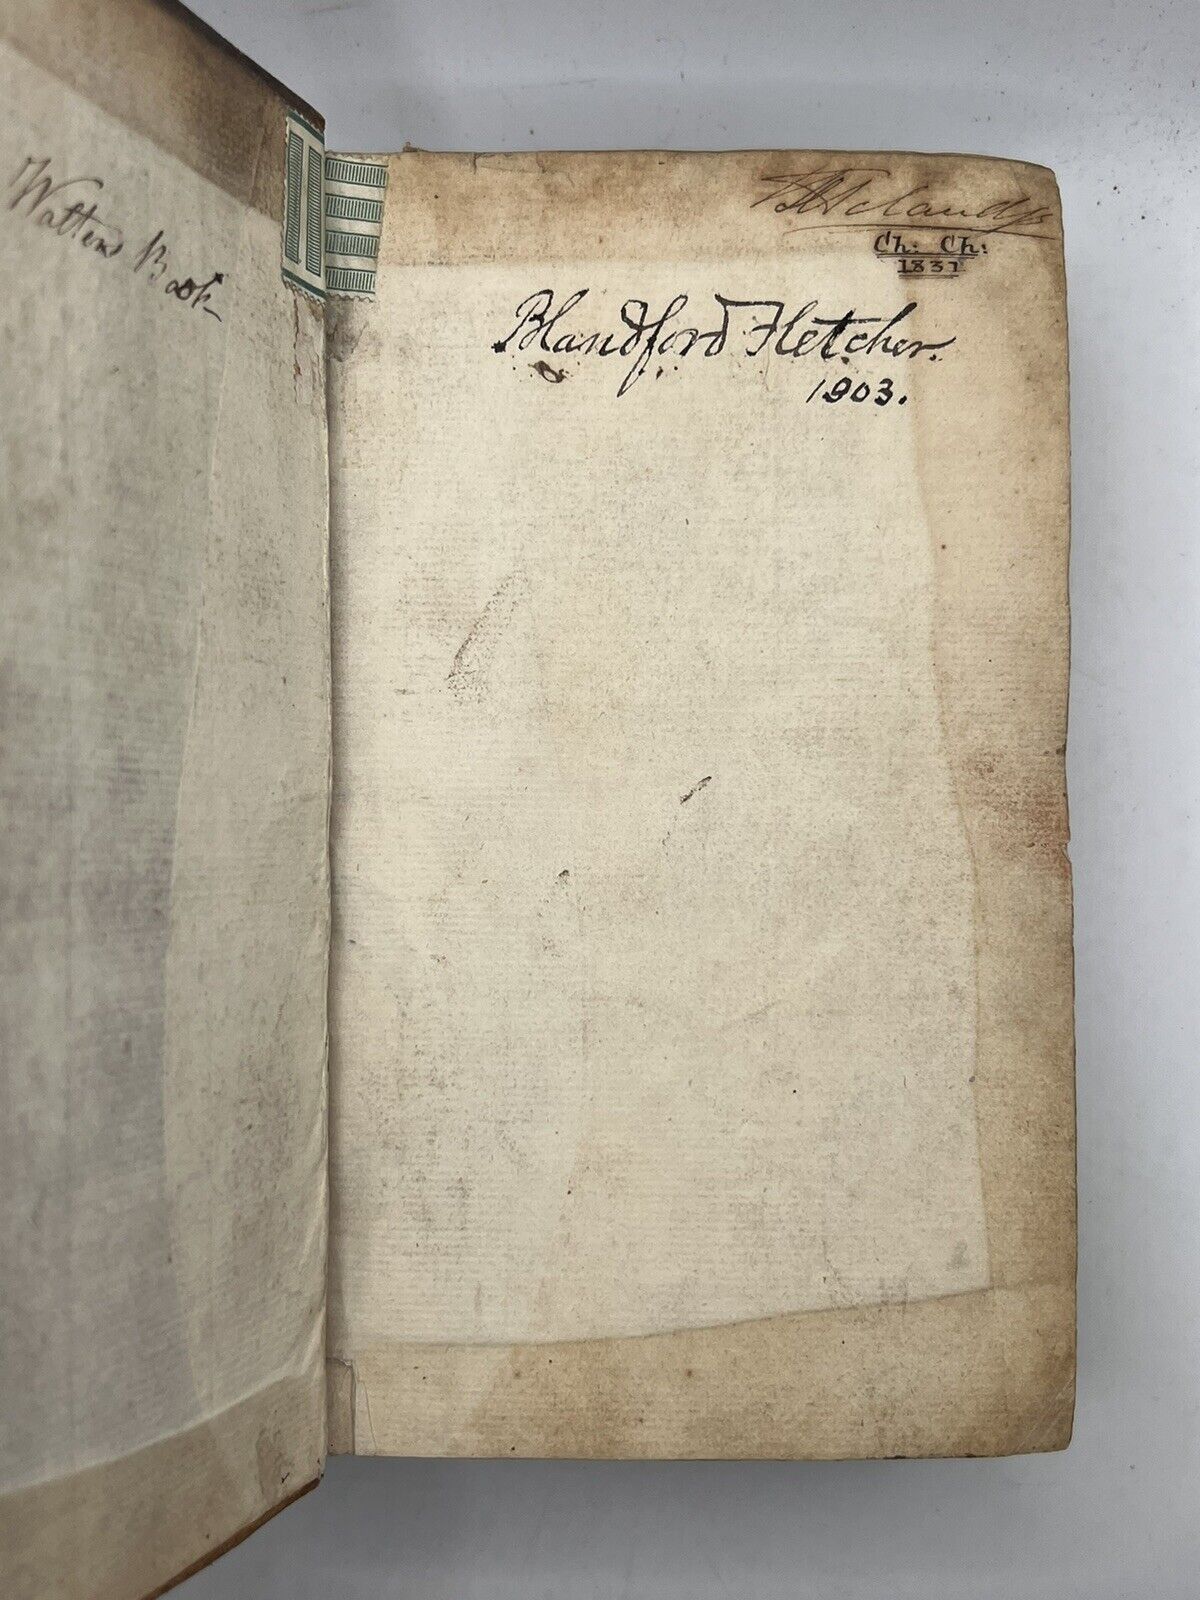 Book
Ch: Ch:
1831
Blandford Fletcher.
1903.